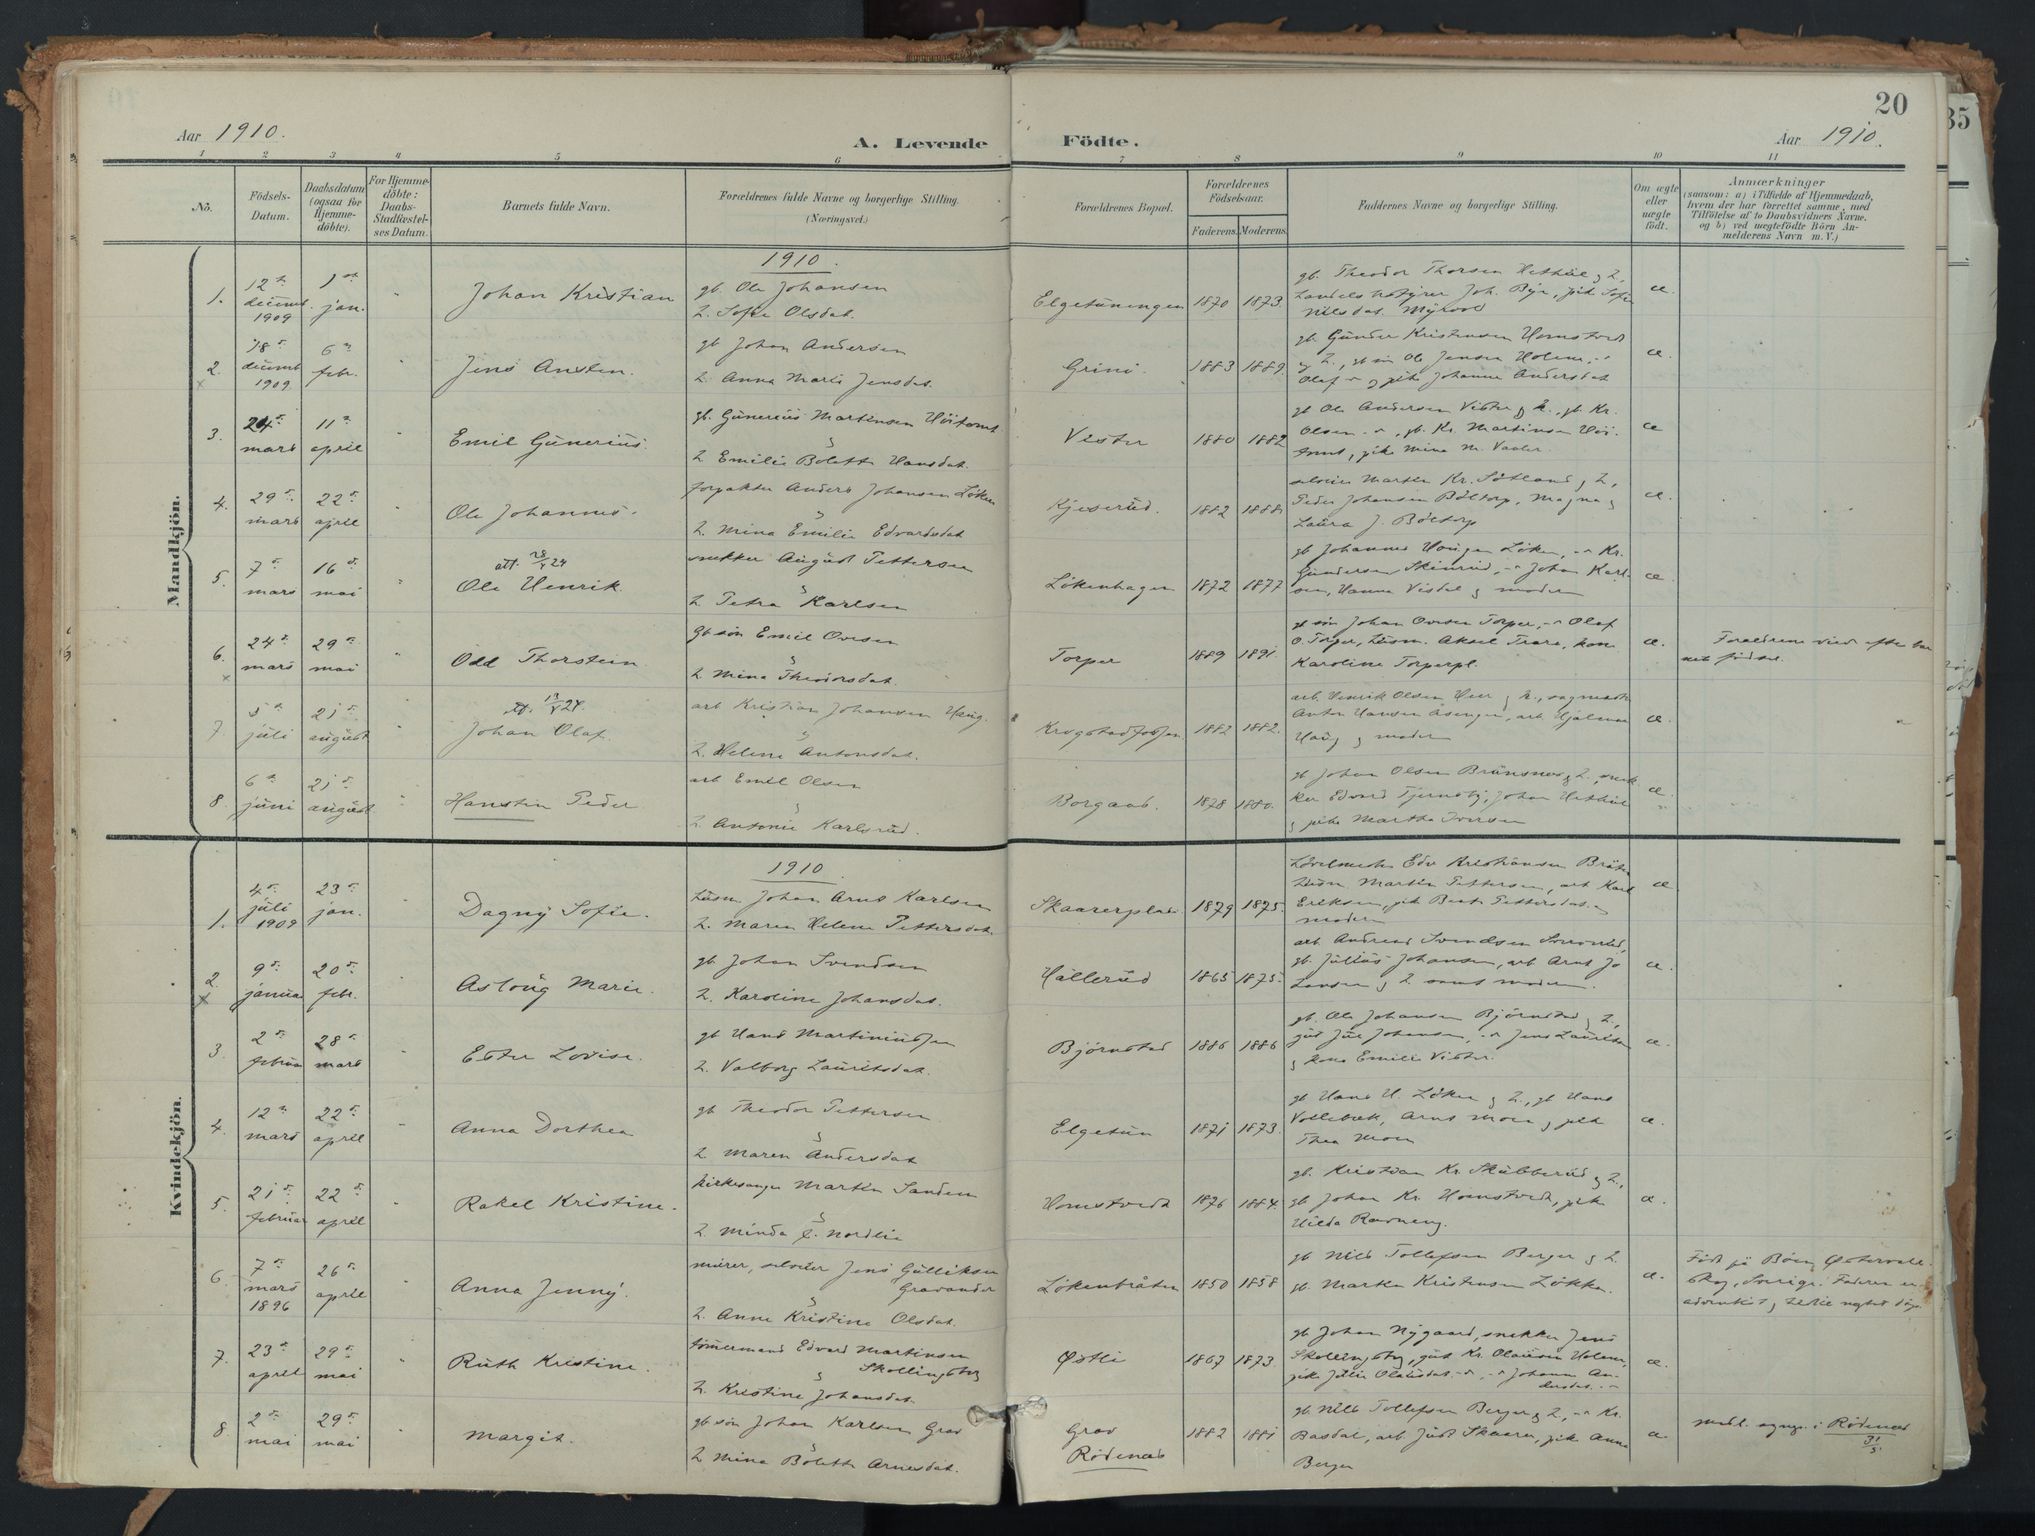 20
Aar 1910.
A. Levende Födte.
Aar 1910.
1 2 3 4 5 6 7 8 9 10 11
No.
Födsels-Datum.
Daabsdatum (ogsaa for Hjemme-döbte).
For Hjemme-döbte: Daabs-Stadfæstel-ses Datum.
Barnets fulde Navn.
Forældrenes fulde Navne og borgerlige Stilling. (Næringsvei.)
Forældrenes Bopæl.
Forældrenes Födselsaar.
Faderens. Moderens.
Faddernes Navne og borgerlige Stilling.
Om ægte eller uægte födt.
Anmærkninger
(saasom: a) i Tilfælde af Hjemmedaab,
hvem der har forrettet samme, med
Tilföielse af to Daabsvidners Navne.
og b) ved uægtefödte Börn An-
melderens Navn m. V.)
Mandkjön.
1910.
1. 12 decemb. 1909 1 jan. Johan Kristian
gb. Ole Johansen
h. Sofie Olsdat.
Elgetuningen 1870 1873.
gb. Theodor Thorsen
Nilsdat. Myrvol
æ.
2. 18 decemb 1909 6 febr. Jens Ansten.
gb Johan Andersen
h. Anna Marie Jensdat.
Grini. 1883 1889.
gb. Gunder Kristensen Homstvedt
Ole Jensen Holene
Olaf pike Johanne Andersdat
æ.
3. 24 mars 11 april Emil Gunerius.
gb. Gunerius Martinsen Höitomt
h Emilie Bolette Hansdat.
Vister 1880 1882
gb Ole Andersen Vister & h., gb. Kr.
Olsen gb. Kr. Martinsen Höi-
tomt, pike Mina M. Vaaler.
æ
4. 29 mars 22 april Ole Johannes.
forpakter Anders Johansen Löken
h. Mina Emilie Edvardsdat
Kjeserud. 1882 1888
selveier Martin Kr. Sötland & h,
Peder Johansen Böltorp, Magna &
Laura J. Böltorp
æ.
5. 7 mars 16 mai att. 28/5 24 Ole Henrik.
snekker August Pettersen
h Petra Karlsen
Lökenhagen 1872 1877
gb Johannes Haugen Löken, Kr.
Gundersen Skinrud, Johan Karl-
sen, Hanna Visdal & moderen
æ.
6. 24 mars 29 mai Odd Thorstein.
gb søn Emil Ovesen
h Mina Theodorsdat.
Torper 1889 1891.
gb søn Johan Ovesen Torper, Olaf
O. Torper, husm. Aksel Trara, kone
Karoline Torperpl.
æ.
Forældrene viet efter bar
nets fødsel.
7. 5 juli 21 august att. 13/5 24. Johan Olaf.
arb Kristian Johansen Haug.
h. Helene Antonsdat.
Krogstadfossen 1882 1882.
arb. Henrik Olsen Heer & h.,
Anton Hansen Asengen, arb Hjalmar
Haug & moderen
æ.
8. 6 juni 21 august Hanstein Peder
arb Emil Olsen
h Antonie Karlsrud.
Borgaas. 1878 1880.
gb Johan Olsen Brunsnes & h., snek
ker Edvard Tjernsby, Johan
& pike Martha Iversen
æ.
Kvindekjön.
1910.
1. 4 juli 1909 23 jan. Dagny Sofie.
husm. Johan Arns Karlsen
h. Maren Helene Pettersdat.
Skaarerplads. 1879 1875.
Edv Kristiansen Bråten
husm Martin Pettersen, arb Karl
Eriksen, pik Beate Pettersdat. &
moderen
æ.
2. 9 januar 20 febr. Aslöug Marie.
gb Johan Svendsen
h. Karoline Johansdat.
Hallerud 1865 1875.
arb Andreas Svendsen
gb. Julius Johansen, arb. Arnt Jo
hansen & h samt moderen.
æ.
3. 2 februar 28 mars Ester Lovise.
gb Hans Martiniussen
h. Valborg Lauritsdat.
Bjørnstad 1886 1886
gb. Ole Johansen Bjørnstad & h.,
gut Jul Johansen, Jens Lauritsen
& kone Emilie Vister.
æ.
4. 12 mars 22 april Anna Dorthea
gb Theodor Pettersen
h. Maren Andersdat
Elgetun 1871 1873.
gb Hans H. Löken & h., gb Hans
Vollebæk, Arns Moen & pike
Thea Moen
æ.
5. 21 februar 22 april Rakel Kristine.
kirkesanger Martin Sandem
h Minda E. Nordlie
Homstvedt 1876 1884.
gb. Kristian Kr. Skubberud & h.,
gb Johan Kr. Homstvedt, pike
Hilda Ravneng.
æ.
6. 7 mars 1896 26 april Anna Jenny.
murer, selveier Jens Gulliksen
Gravander
h. Anne Kristine Olsdat.
Lökenbråten 1850 1858
gb Nils Tollefsen Berger & h.
gb. Martin Kristensen Lökken.
æ.
Födt på Böen, Østervall-
skog, Sverige. Faderen er
adventist &
7. 23 april 29 mai Ruth Kristine.
tømmermand Edvard Martinsen
Skollingsberg
h. Kristine Johansdat.
Østli 1867 1873.
gb Johan Nygaard, snekker Jens
Skollingsberg, gut Kr. Olausen Holene,
pike Julie Olausdat. Johanne An-
dersdat.
æ.
8. 2 mai 29 mai Margit.
gb søn Johan Karlsen Grav
h Mina Bolette Arnesdat.
Grav
Rödenæs
1882 1881
gb. Nils Tollefsen Berger & h., Kr.
Basdal, arb. Just Skaarer, pike Anna
Berger
æ
medl. i Rödenæs
31/5